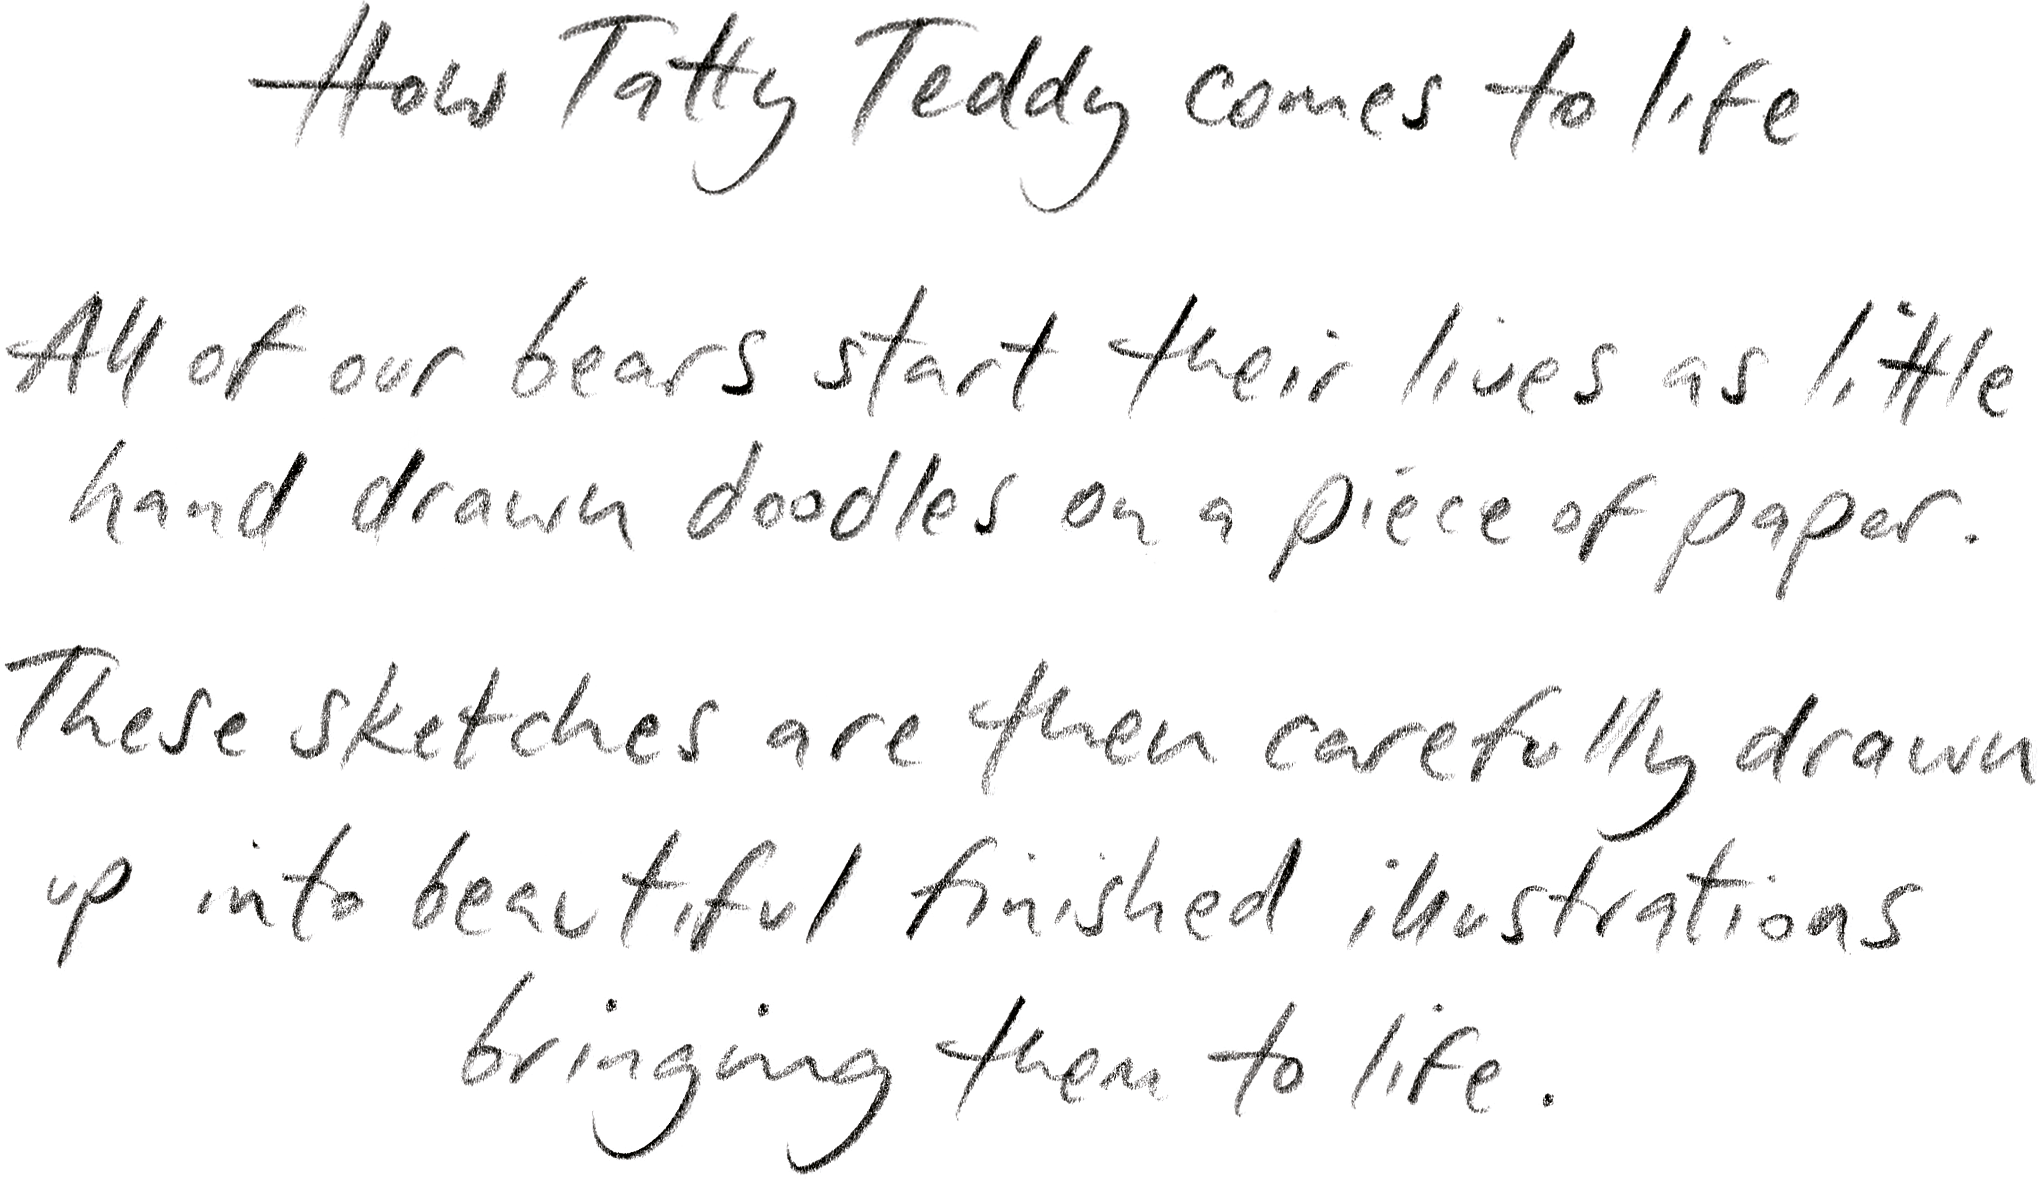 How Tatty Teddy comes to life
All of our bears start their lives as little
hand drawn doodles on a piece of paper.
These sketches are then carefully drawn
up into beautiful finished illustrations
bringing them to life.